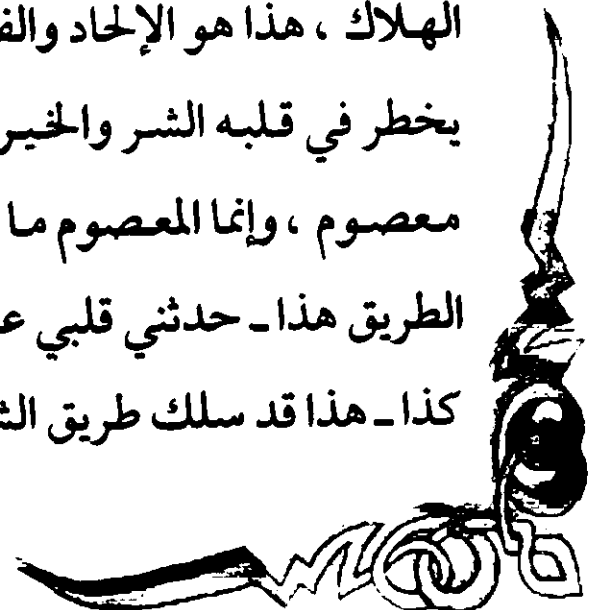 الهلاك ، هذا هو الإلحاد
يخطر في قلبه الشر والخير
معصوم ، وإنما المعصوم ما
الطريق هذا ـ حدثني قلبي
كذا ـ هذا قد سلك طريق